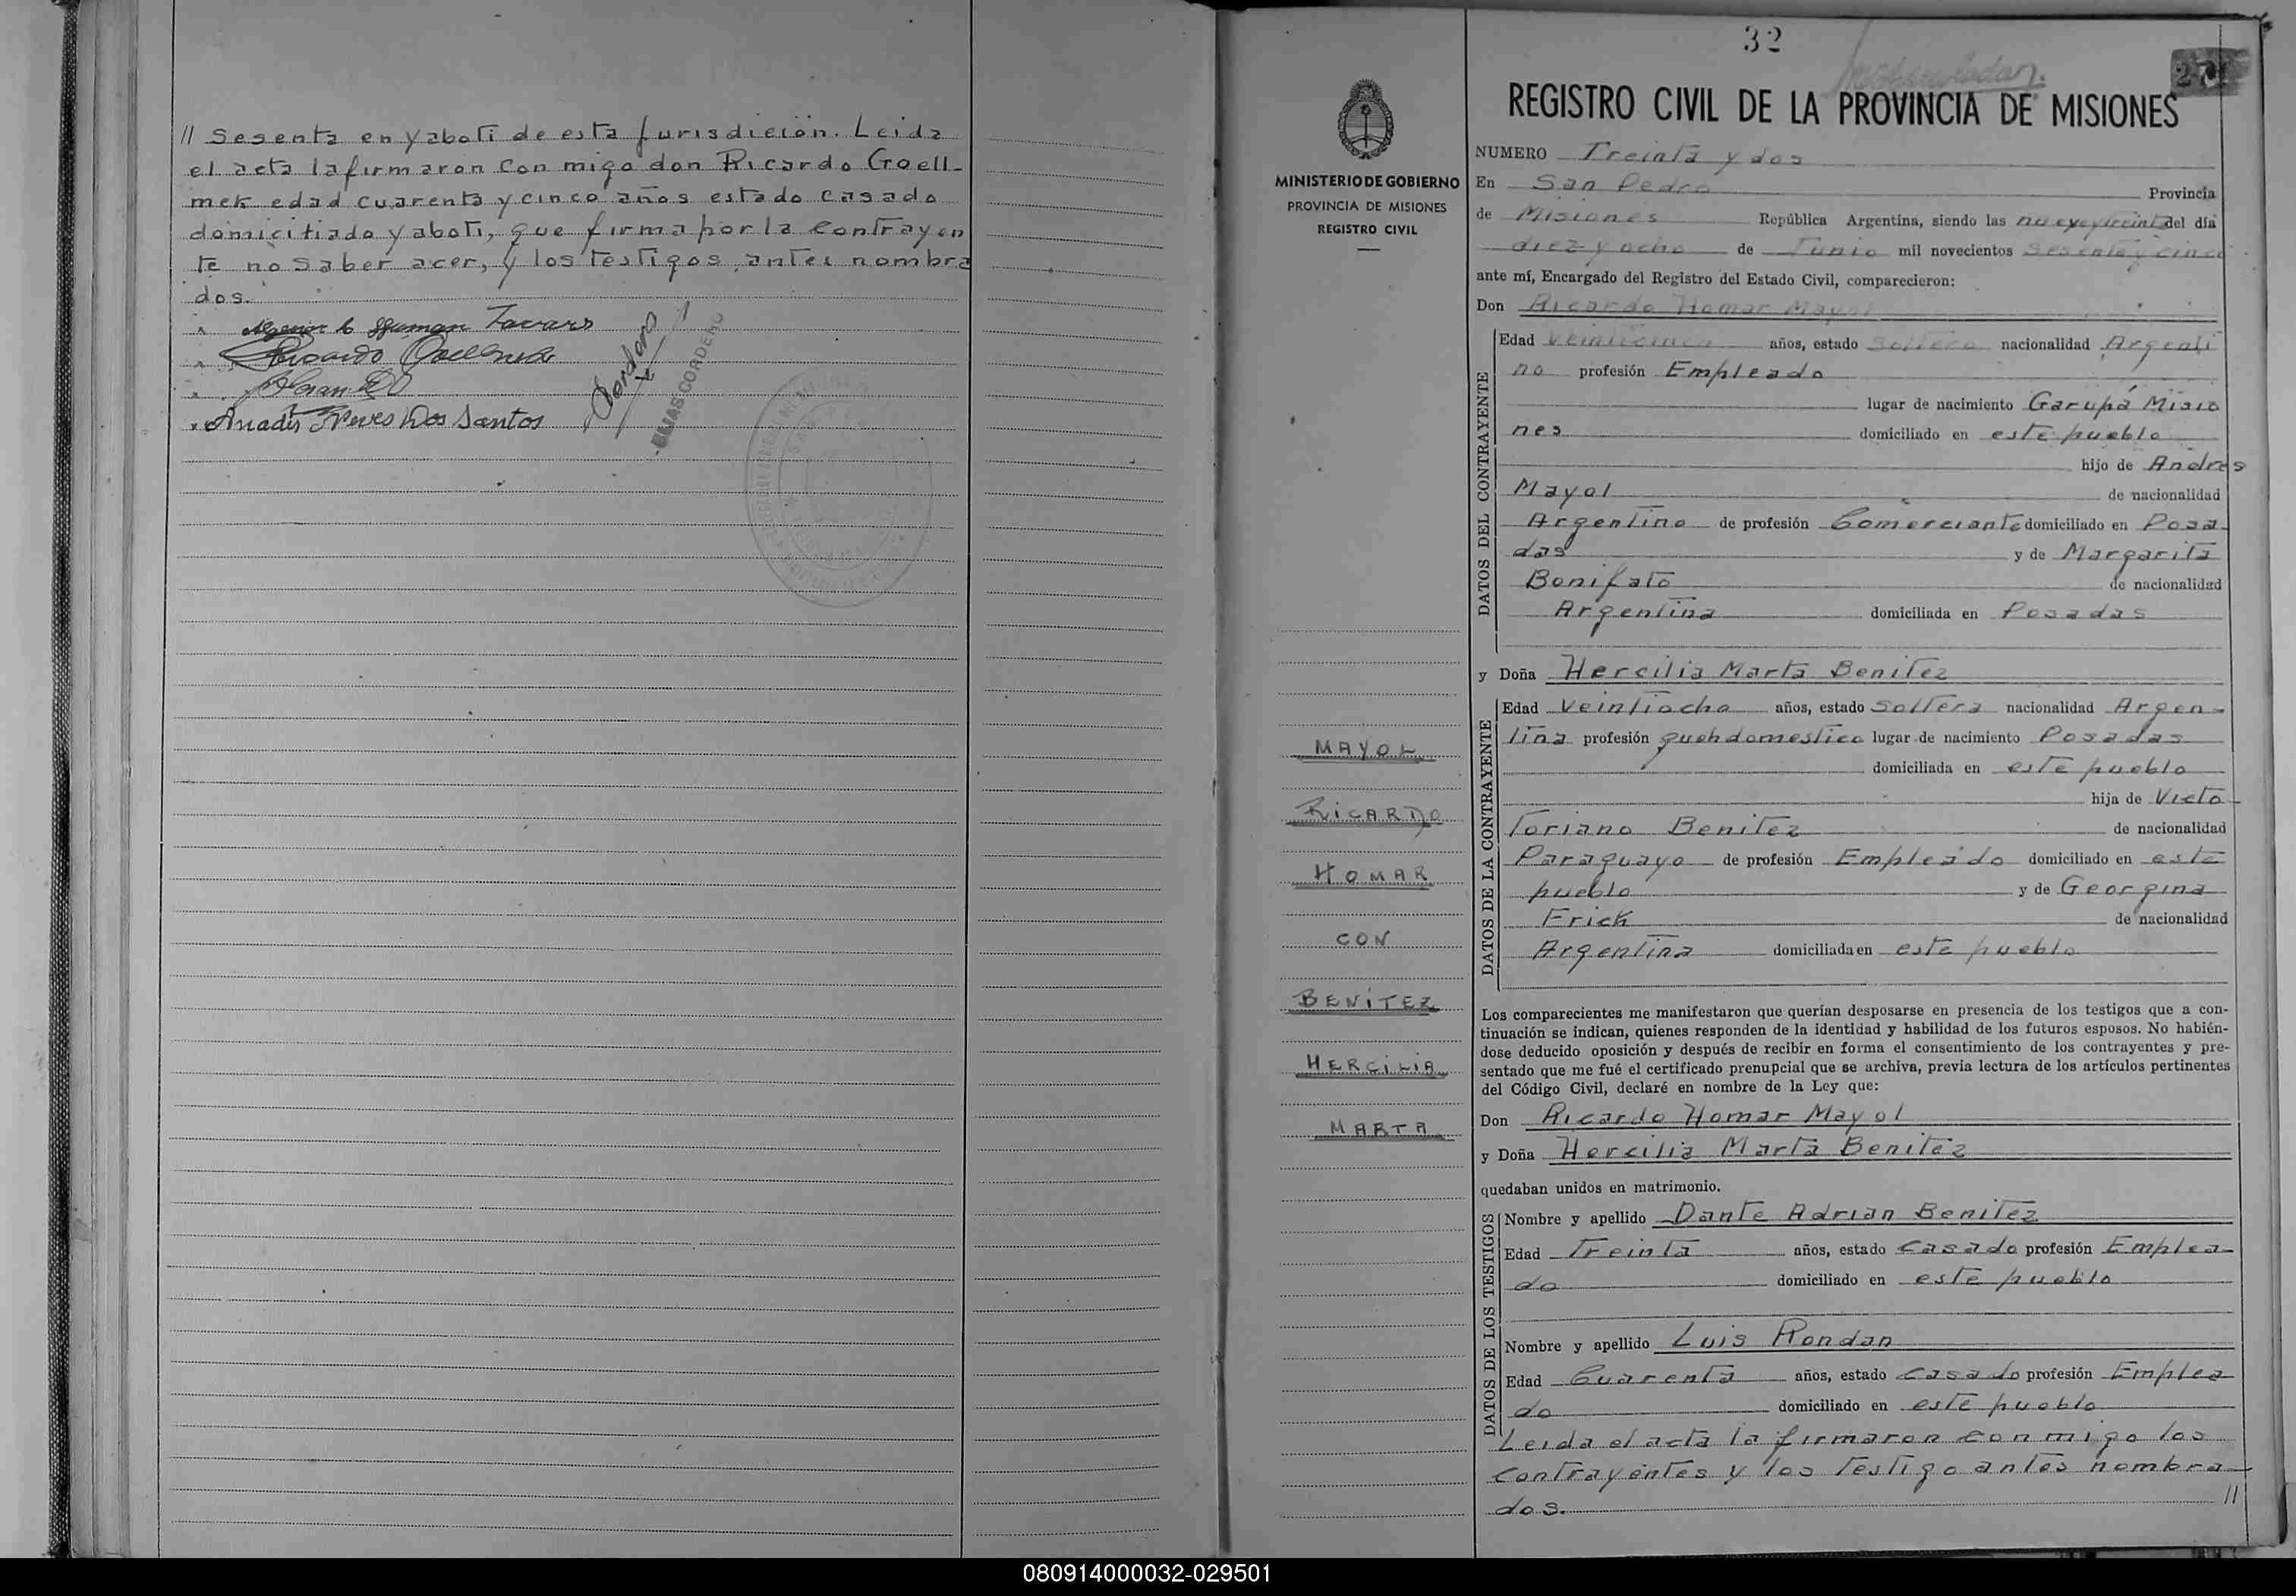 // Sesenta en Yaboti de esta Jurisdicion. Leida
el acta la firmaron con migo don Ricardo Goell-
mek edad cuarenta y cinco años estado casado
domicitiado Yaboti, que firma por la contrayen
te no saber acer, y los testigos antes nombra
dos.
Tavars
Ricardo
Amadis Neves Dos Santos
Cordero
ELIAS CORDERO
32
27
REGISTRO CIVIL DE LA PROVINCIA DE MISIONES
MINISTERIO DE GOBIERNO
PROVINCIA DE MISIONES
REGISTRO CIVIL
MAYOL
RICARDO
HOMAR
CON
BENÍTEZ
HERCILIA
MARTA
NUMERO Treinta y dos
En San Pedro Provincia
de Misiones República Argentina, siendo las nueve y treinta del día
diez y ocho de Junio mil novecientos sesenta y cinco
ante mí, Encargado del Registro del Estado Civil, comparecieron:
Don Ricardo Homar Mayol
DATOS DEL CONTRAYENTE
Edad veinticinco años, estado soltero nacionalidad Argenti
no profesión Empleado
lugar de nacimiento Garupá Misio
nes domiciliado en este pueblo
hijo de Andres
Mayol de nacionalidad
Argentino de profesión Comerciante domiciliado en Posa-
das y de Margarita
Bonifato de nacionalidad
Argentina domiciliada en Posadas
y Doña Hercilia Marta Benitez
DATOS DE LA CONTRAYENTE
Edad Veintiocho años, estado soltera nacionalidad Argen-
tina profesión quehdomestico lugar de nacimiento Posadas
domiciliada en este pueblo
hija de Victo-
toriano Benitez de nacionalidad
Paraguayo de profesión Empleado domiciliado en este
pueblo y de Georgina
Frick de nacionalidad
Argentina domiciliada en este pueblo
Los comparecientes me manifestaron que querían desposarse en presencia de los testigos que a con-
tinuación se indican, quienes responden de la identidad y habilidad de los futuros esposos. No habién-
dose deducido oposición y después de recibir en forma el consentimiento de los contrayentes y pre-
sentado que me fué el certificado prenupcial que se archiva, previa lectura de los artículos pertinentes
del Código Civil, declaré en nombre de la Ley que:
Don Ricardo Homar Mayol
y Doña Hercilia Marta Benitez
quedaban unidos en matrimonio.
DATOS DE LOS TESTIGOS
Nombre y apellido Dante Adrian Benitez
Edad Treinta años, estado casado profesión Emplea-
do domiciliado en este pueblo
Nombre y apellido Luis Rondan
Edad Cuarenta años, estado casado profesión Emplea
do domiciliado en este pueblo
Leida el acta la firmaron con migo los
contrayentes y los testigo antes nombra-
dos. //
080914000032-029501